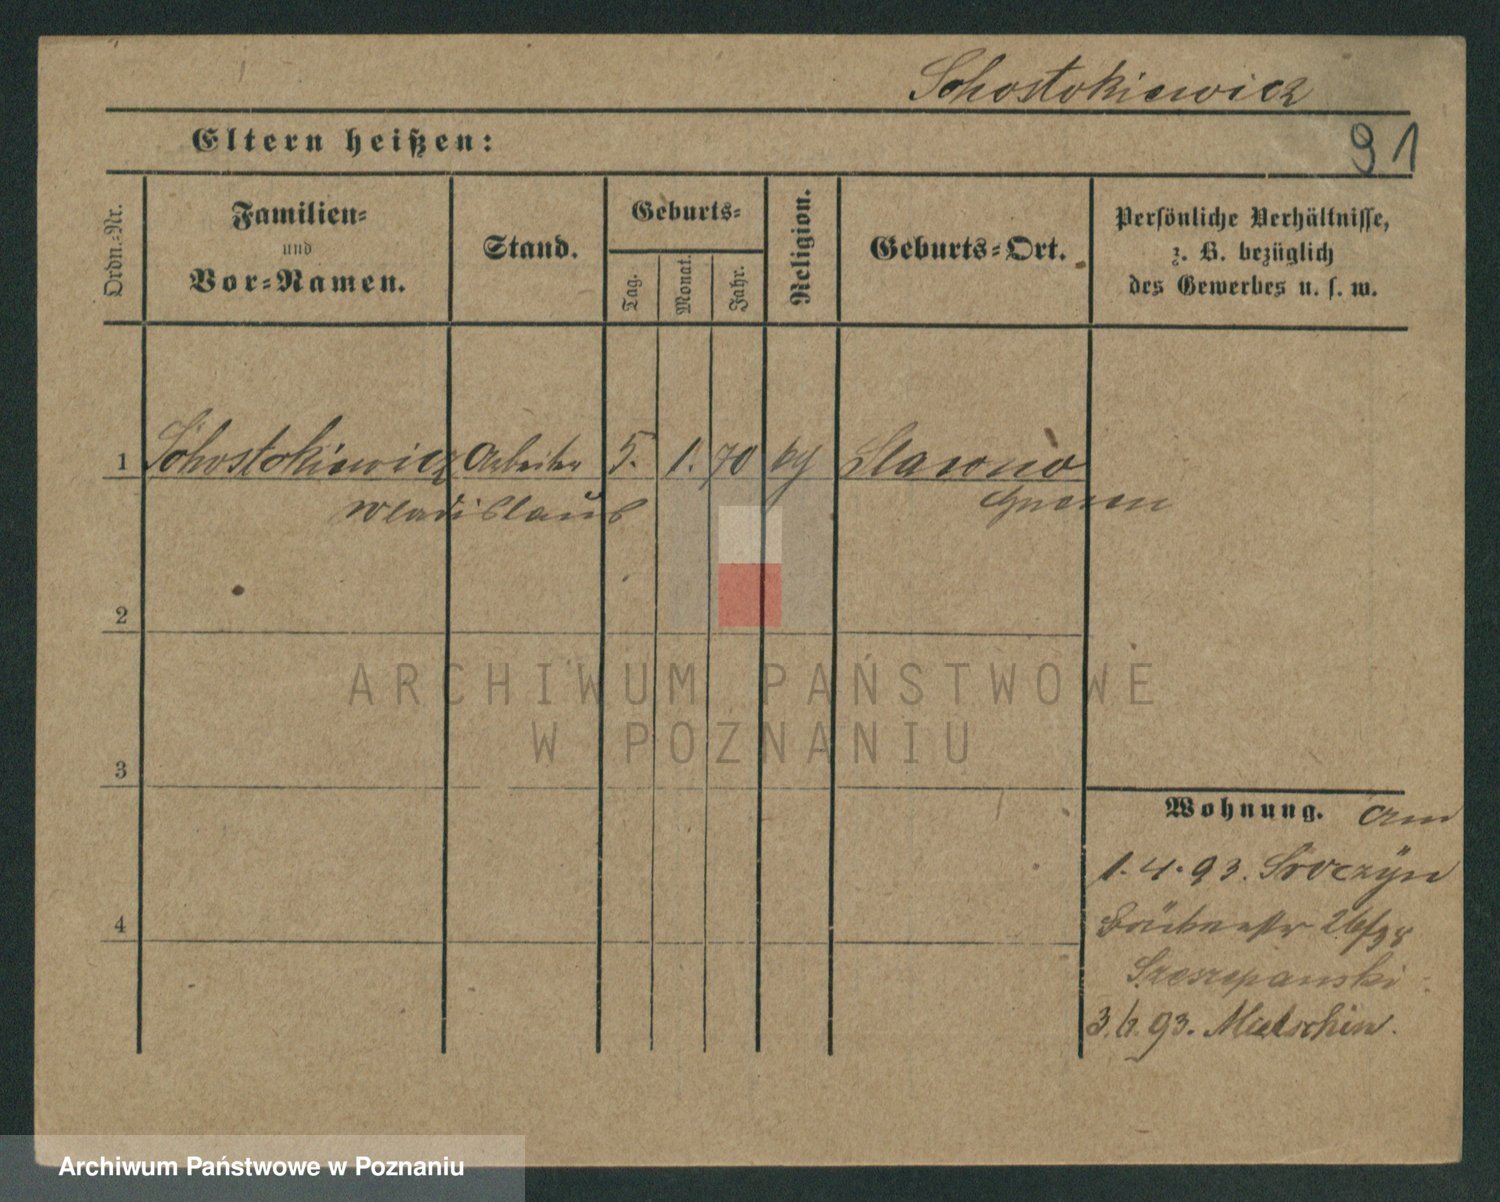 Schostokiewicz
Eltern heißen:
91
Ordn.-Nr.
Familien-
und
Vor-Namen.
Stand.
Geburts-
Tag.
Monat.
Jahr.
Religion.
Geburts-Ort.
Persönliche Verhältnisse,
z. B. bezüglich
des Gewerbes u. s. w.
1 Schostokiewicz Arbeiter 5. 1. 70 kg Slawno
Wladislaus Gnesen
2
ARCHIWUM PAŃSTWOWE
W POZNANIU
3
Wohnung. Am
1.4.93. Sroczyn
4
Szczepanski
3.6.93. Matschin.
Archiwum Państwowe w Poznaniu